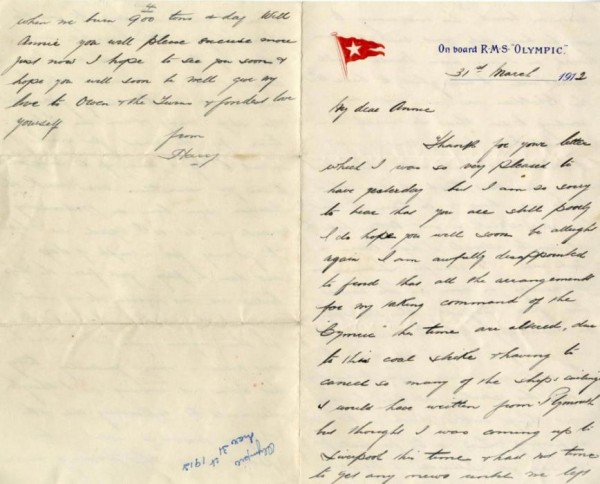 4
when we burn 900 tons a day Well
Annie you will please excuse more
just now I hope to see you soon &
hope you will soon be well give my
love to Owen & the Twins & fondest love
yourself
from
Harry
Olympic
Mar 31st 1912
On board R.M.S. "OLYMPIC."
31st March 1912
My dear Annie
Thank for your letter
which I was so very pleased to
have yesterday but I am so sorry
to hear that you are still poorly
I do hope you will soon be allright
again I am awfully disappointed
to find that all the arrangements
for my taking command of the
"Cymric" this time are altered, due
to this coal strike & having to
cancel so many of the ships sailing
I would have written from Plymouth
but thought I was coming up to
Liverpool this time & had not time
to get any news until we left